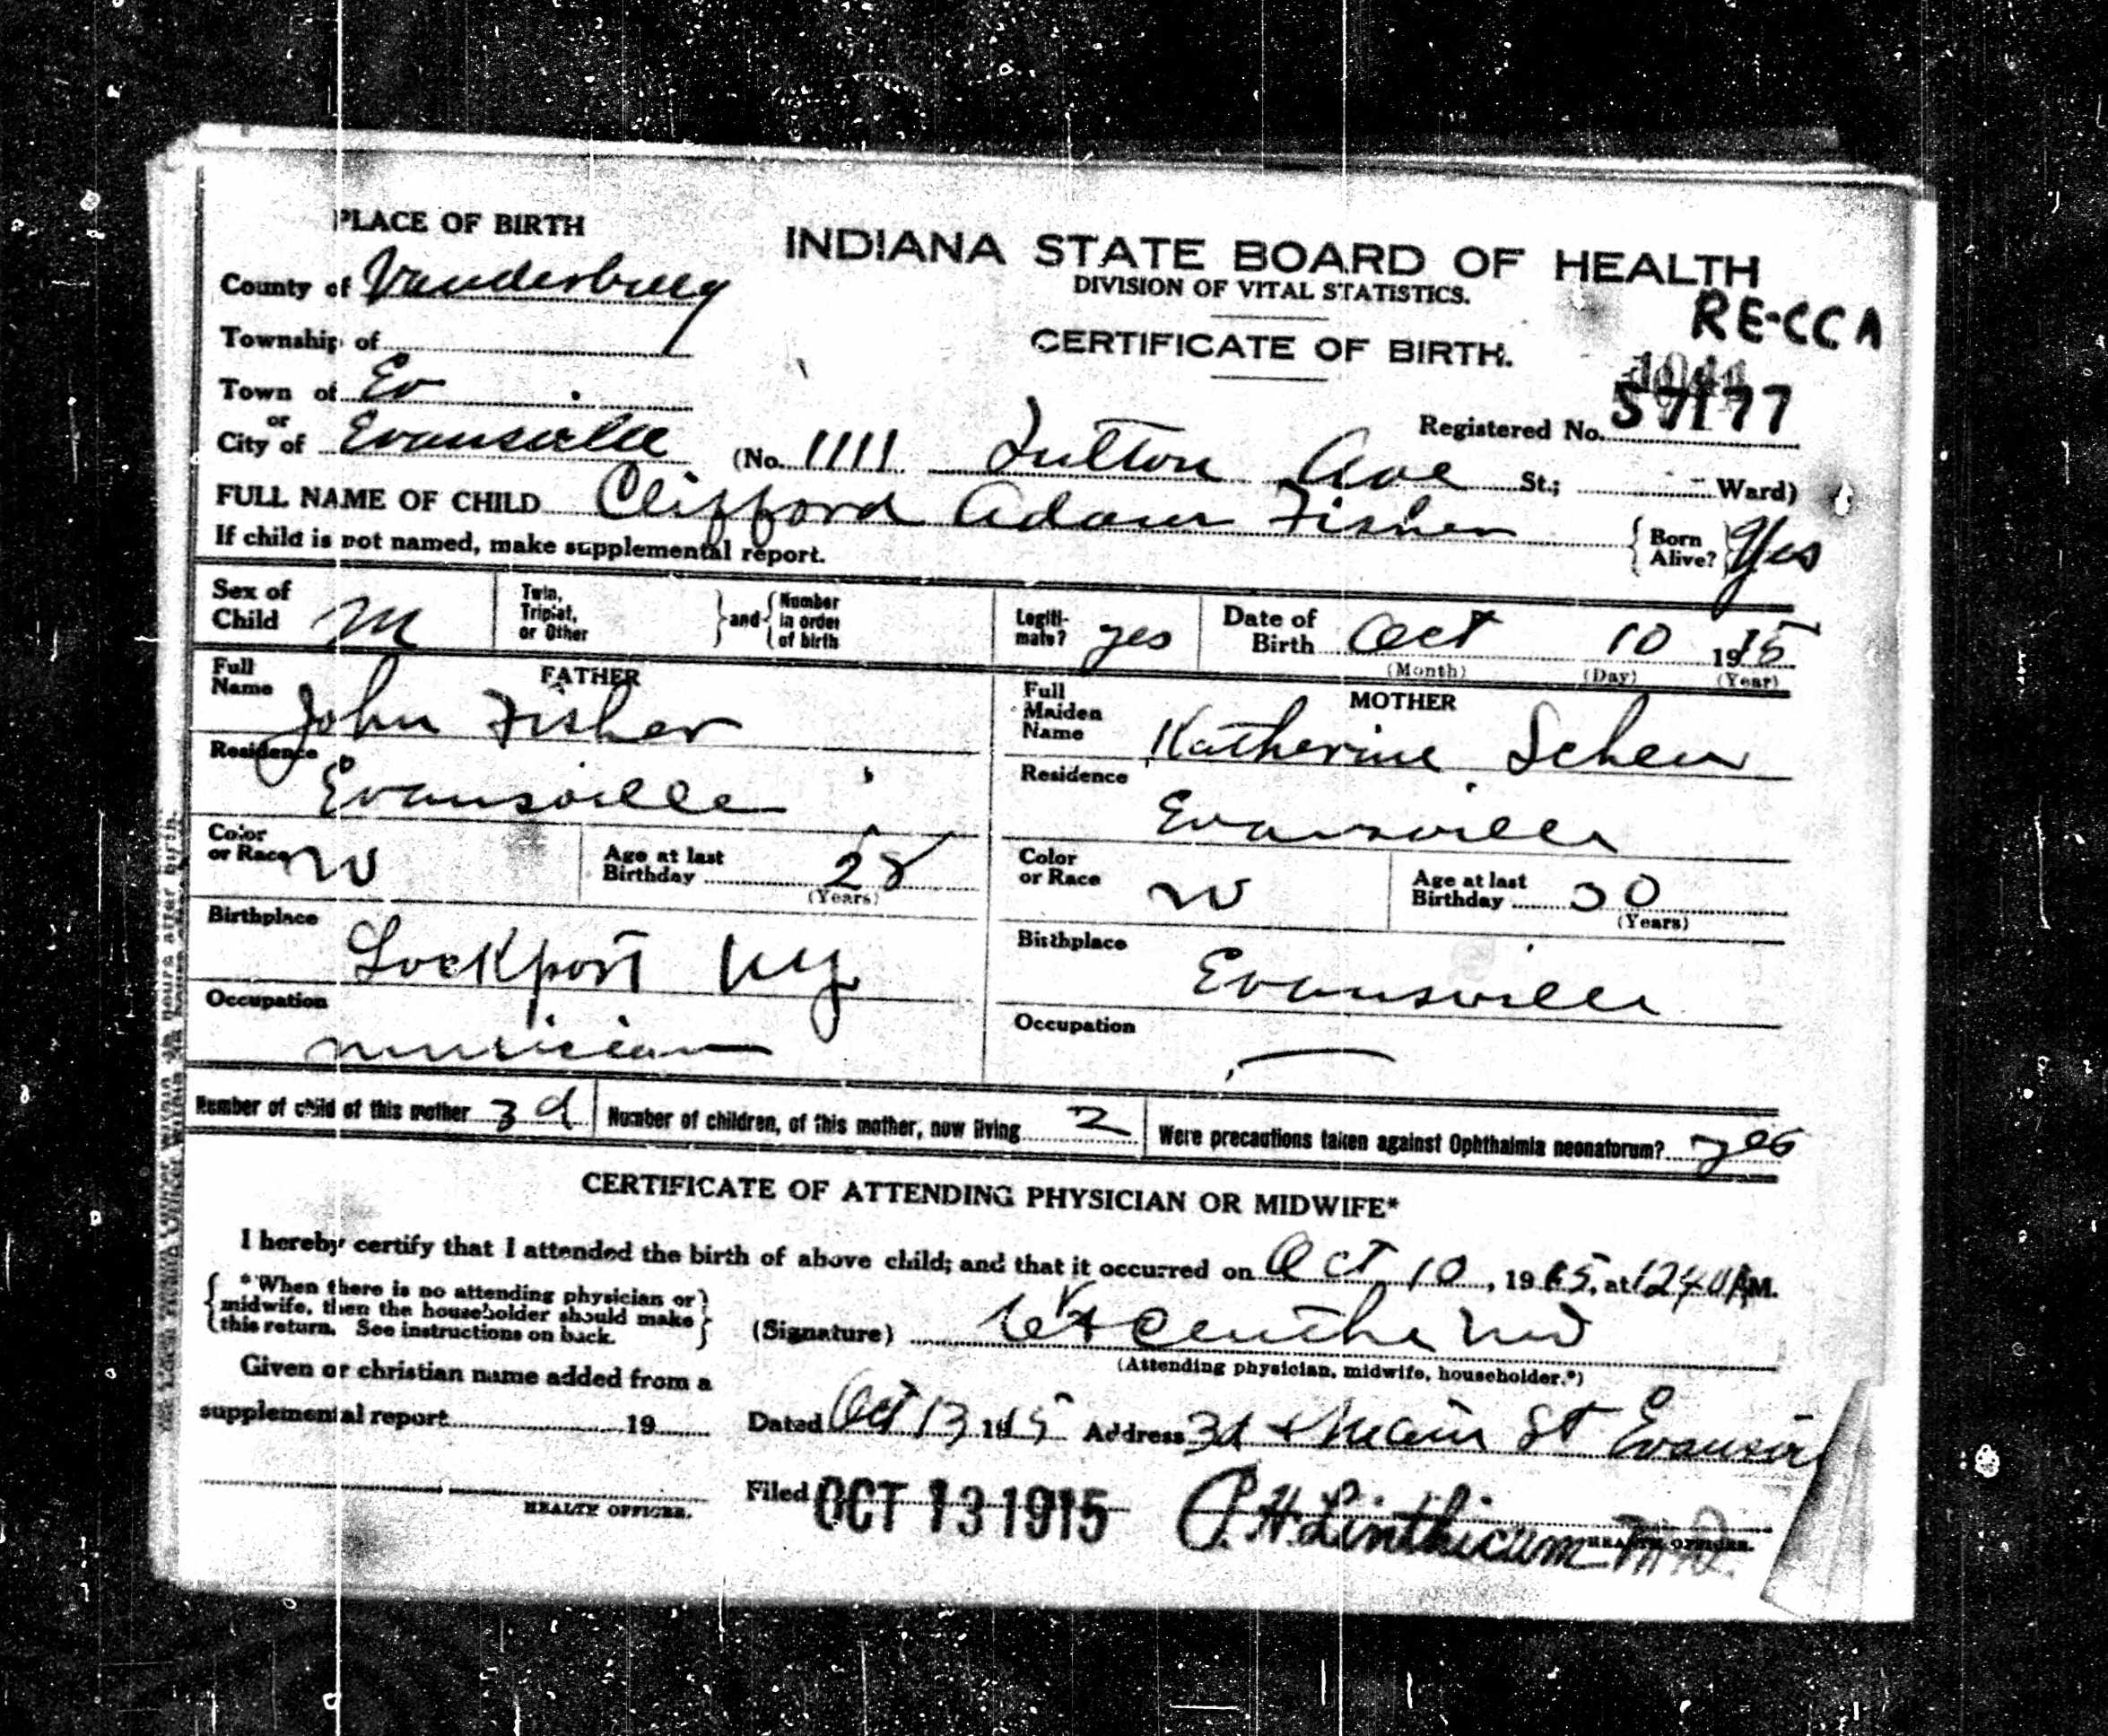 PLACE OF BIRTH
INDIANA STATE BOARD OF HEALTH
DIVISION OF VITAL STATISTICS.
County of Vanderburg
RE-CCA
Township of
CERTIFICATE OF BIRTH.
Town of Ev
or
Registered No. 57177
City of Evansville (No. 1111 Fulton Ave St.; Ward)
FULL NAME OF CHILD Clifford Adam Fisher { Born Alive? } Yes
If child is not named, make supplemental report.
Sex of Child M
Twin, Triplet, or Other } and { Number in order of birth
Legiti-mate? yes
Date of Birth Oct 10 1915
(Month) (Day) (Year)
FATHER
Full Name John Fisher
Residence Evansville
Color or Race W
Age at last Birthday 28
(Years)
Birthplace Lockport Ky
Occupation musician
MOTHER
Full Maiden Name Katherine Scheu
Residence Evansville
Color or Race W
Age at last Birthday 30
(Years)
Birthplace Evansville
Occupation —
Number of child of this mother 3d
Number of children, of this mother, now living 2
Were precautions taken against Ophthalmia neonatorum? yes
CERTIFICATE OF ATTENDING PHYSICIAN OR MIDWIFE*
I hereby certify that I attended the birth of above child; and that it occurred on Oct 10, 1915, at 1240 A M.
{ *When there is no attending physician or midwife, then the householder should make this return. See instructions on back. }
(Signature) MD
(Attending physician, midwife, householder.*)
Given or christian name added from a
supplemental report 19
Dated Oct 13 1915 Address 3d & Main St Evansvil
HEALTH OFFICER.
Filed OCT 13 1915 P. H. Linthicum M.D.
HEALTH OFFICER.